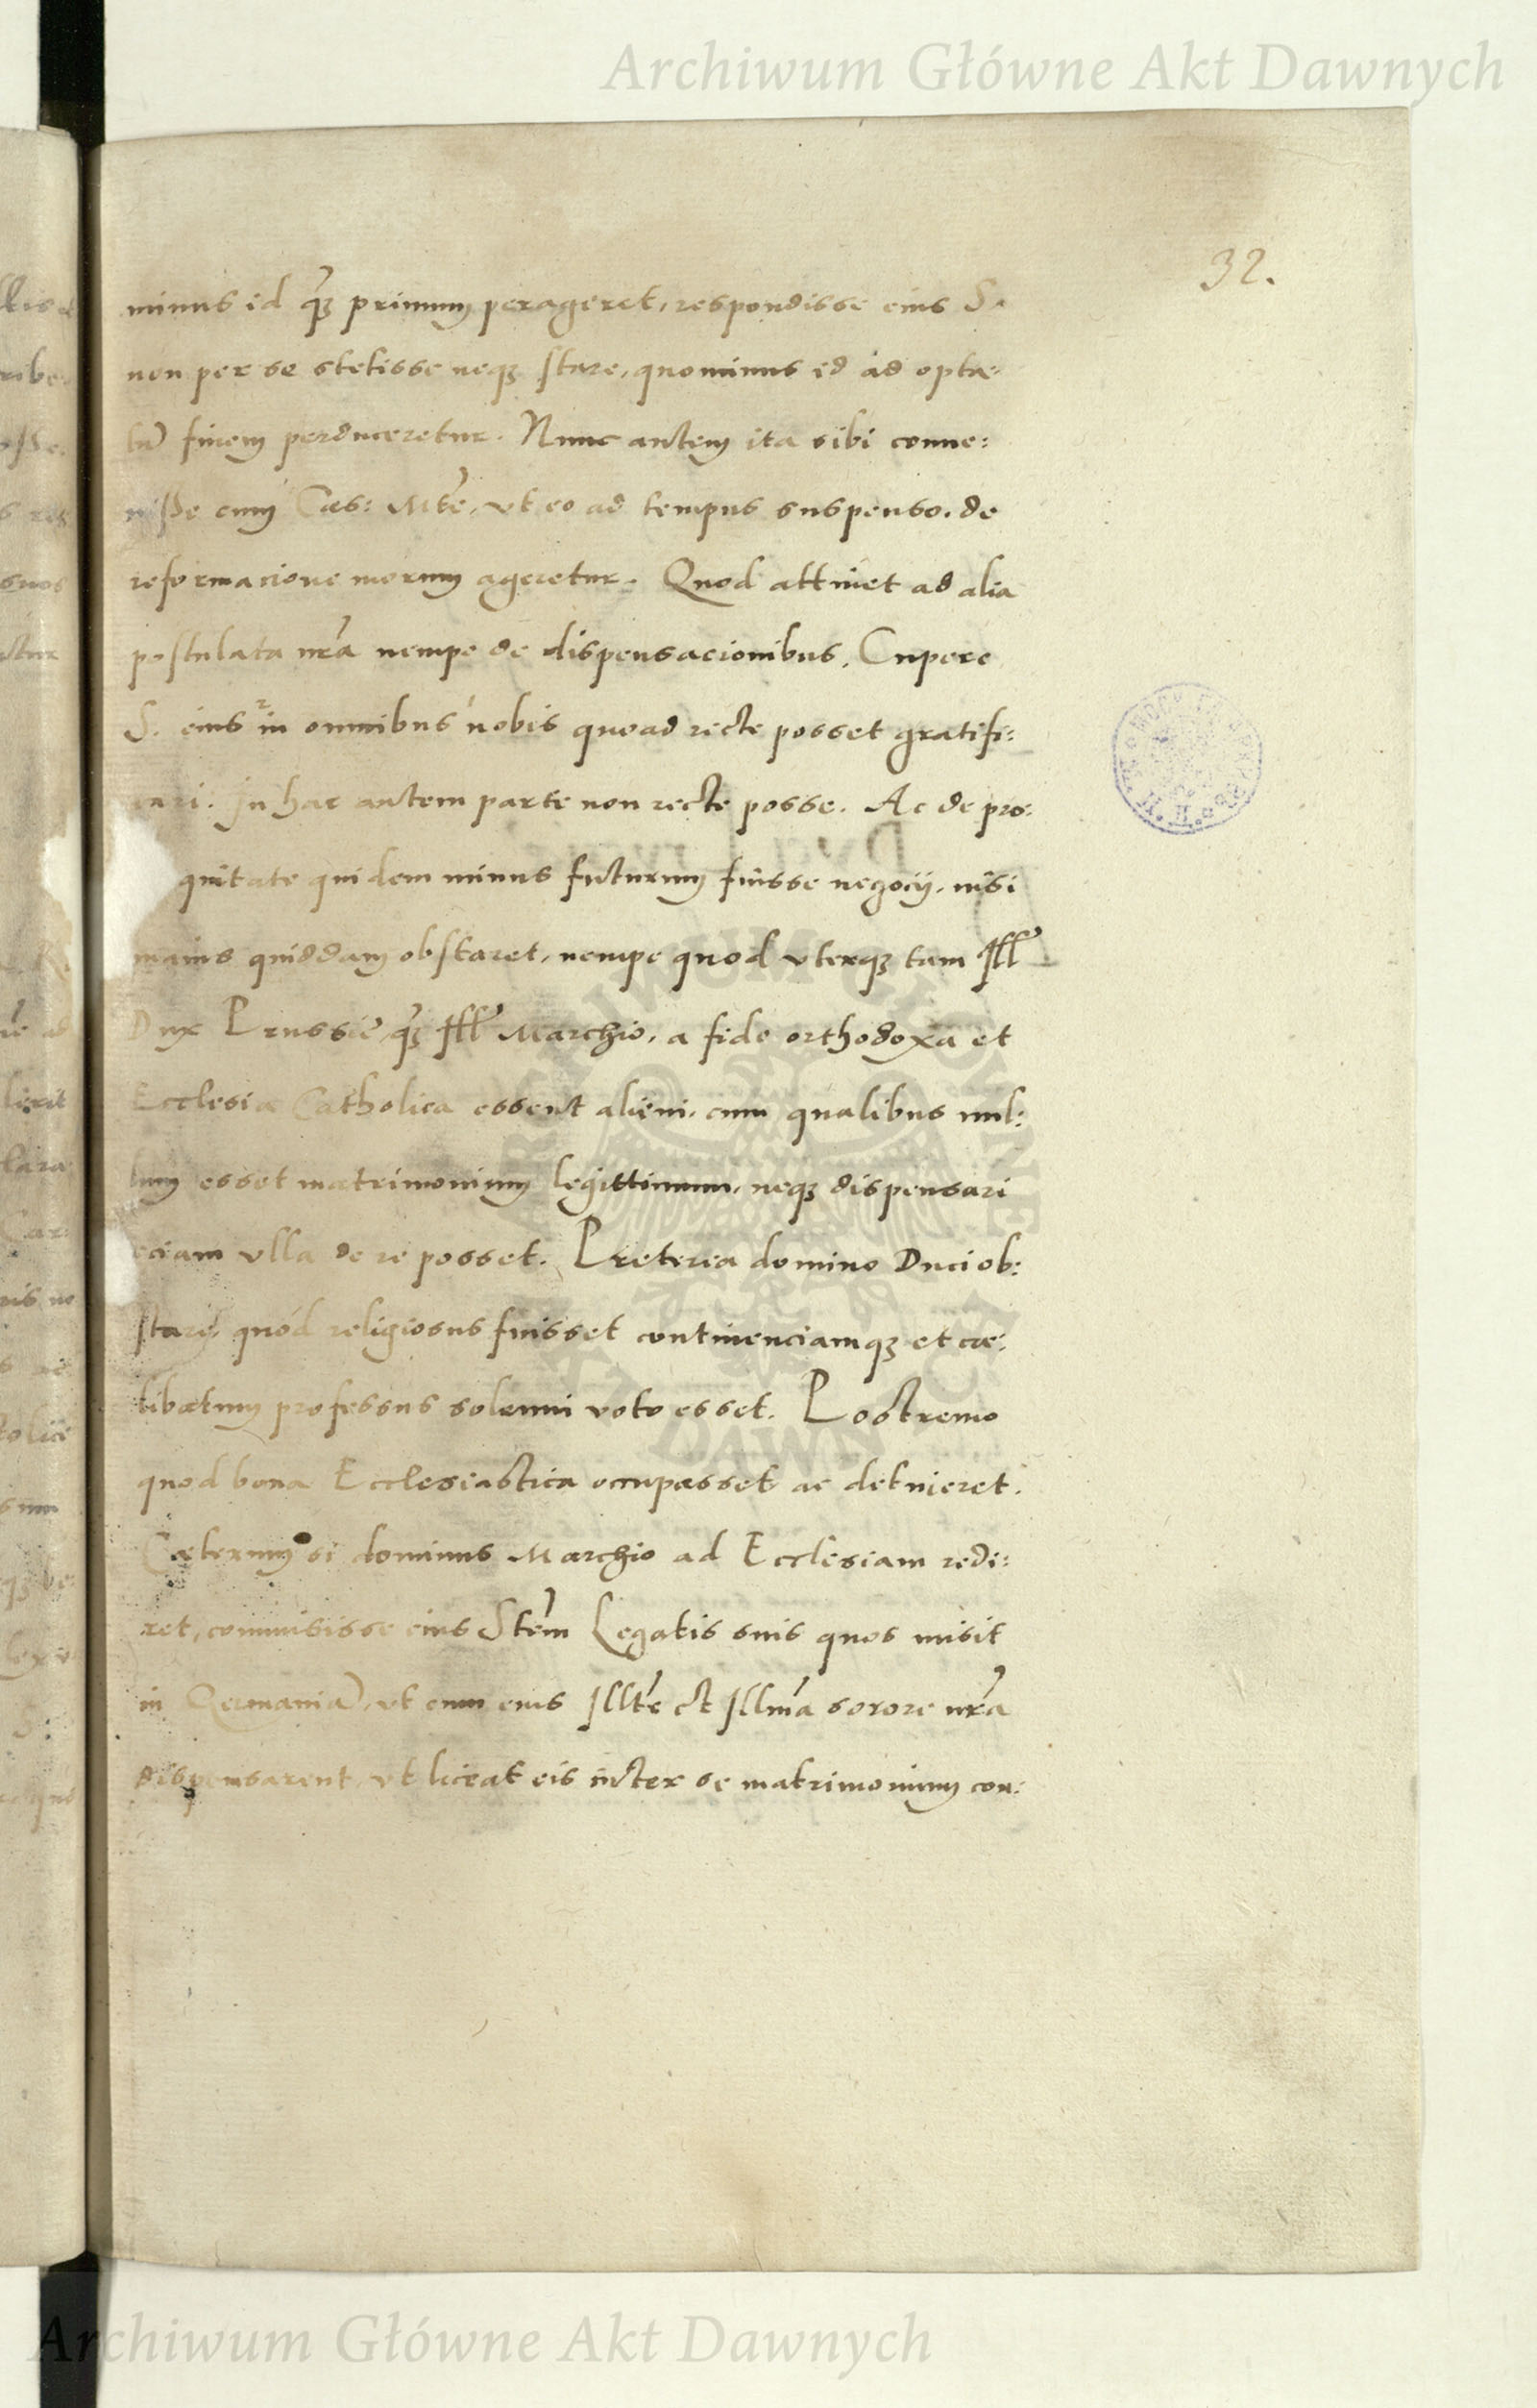 Archiwum Główne Akt Dawnych
32.
minus id q̃ꝫ primum perageret, respondisse eius S.
non per se stetisse neqꝫ stare, quominus id ad opta-
tũ finem perduceretur. Nunc autem ita sibi conue:
nisse cum Caes: Mt̃e, vt eo ad tempus suspenso, de
reformacione morum ageretur. Quod attinet ad alia
postulata nr̃a nempe de dispensacionibus, Cupere
S. eius in omnibus nobis quoad recte posset gratifi:
cari. In hac autem parte non recte posse. Ac de pro:
quitate quidem minus futurum fuisse negocij, nisi
maius quiddam obstaret, nempe quod vterqꝫ tam Ill̃
Dux Prussie q̃ꝫ Ill̃ Marchio, a fide orthodoxa et
Ecclesia Catholica essent alieni, cum qualibus nul:
lum esset matrimonium legittimum, neqꝫ dispensari
eciam vlla de re posset. Preterea domino Duci ob:
stare, quód religiosus fuisset continenciamqꝫ et cæ:
libatum professus solenni voto esset. Postremo
quod bona Ecclesiastica occupasset ac detnieret.
Cæterum si dominus Marchio ad Ecclesiam redi:
ret, commisisse eius St̃em Legatis suis quos misit
in Germaniã, vt cum eius Illt̃e et Illm̃a sorore nr̃a
dispensarent, vt liceat eis inter se matrimonium con:
ARCHIWUM GŁÓWNE
AKT DAWNYCH
Archiwum Główne Akt Dawnych